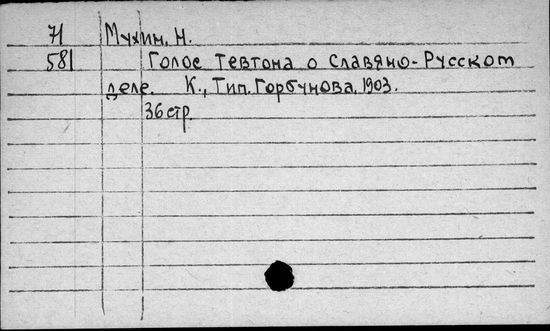 71 Мухин, Н.
581 Голос Тевтона о Славяно-Русском
деле. К., Тип. Горбунова, 1903.
36 стр.